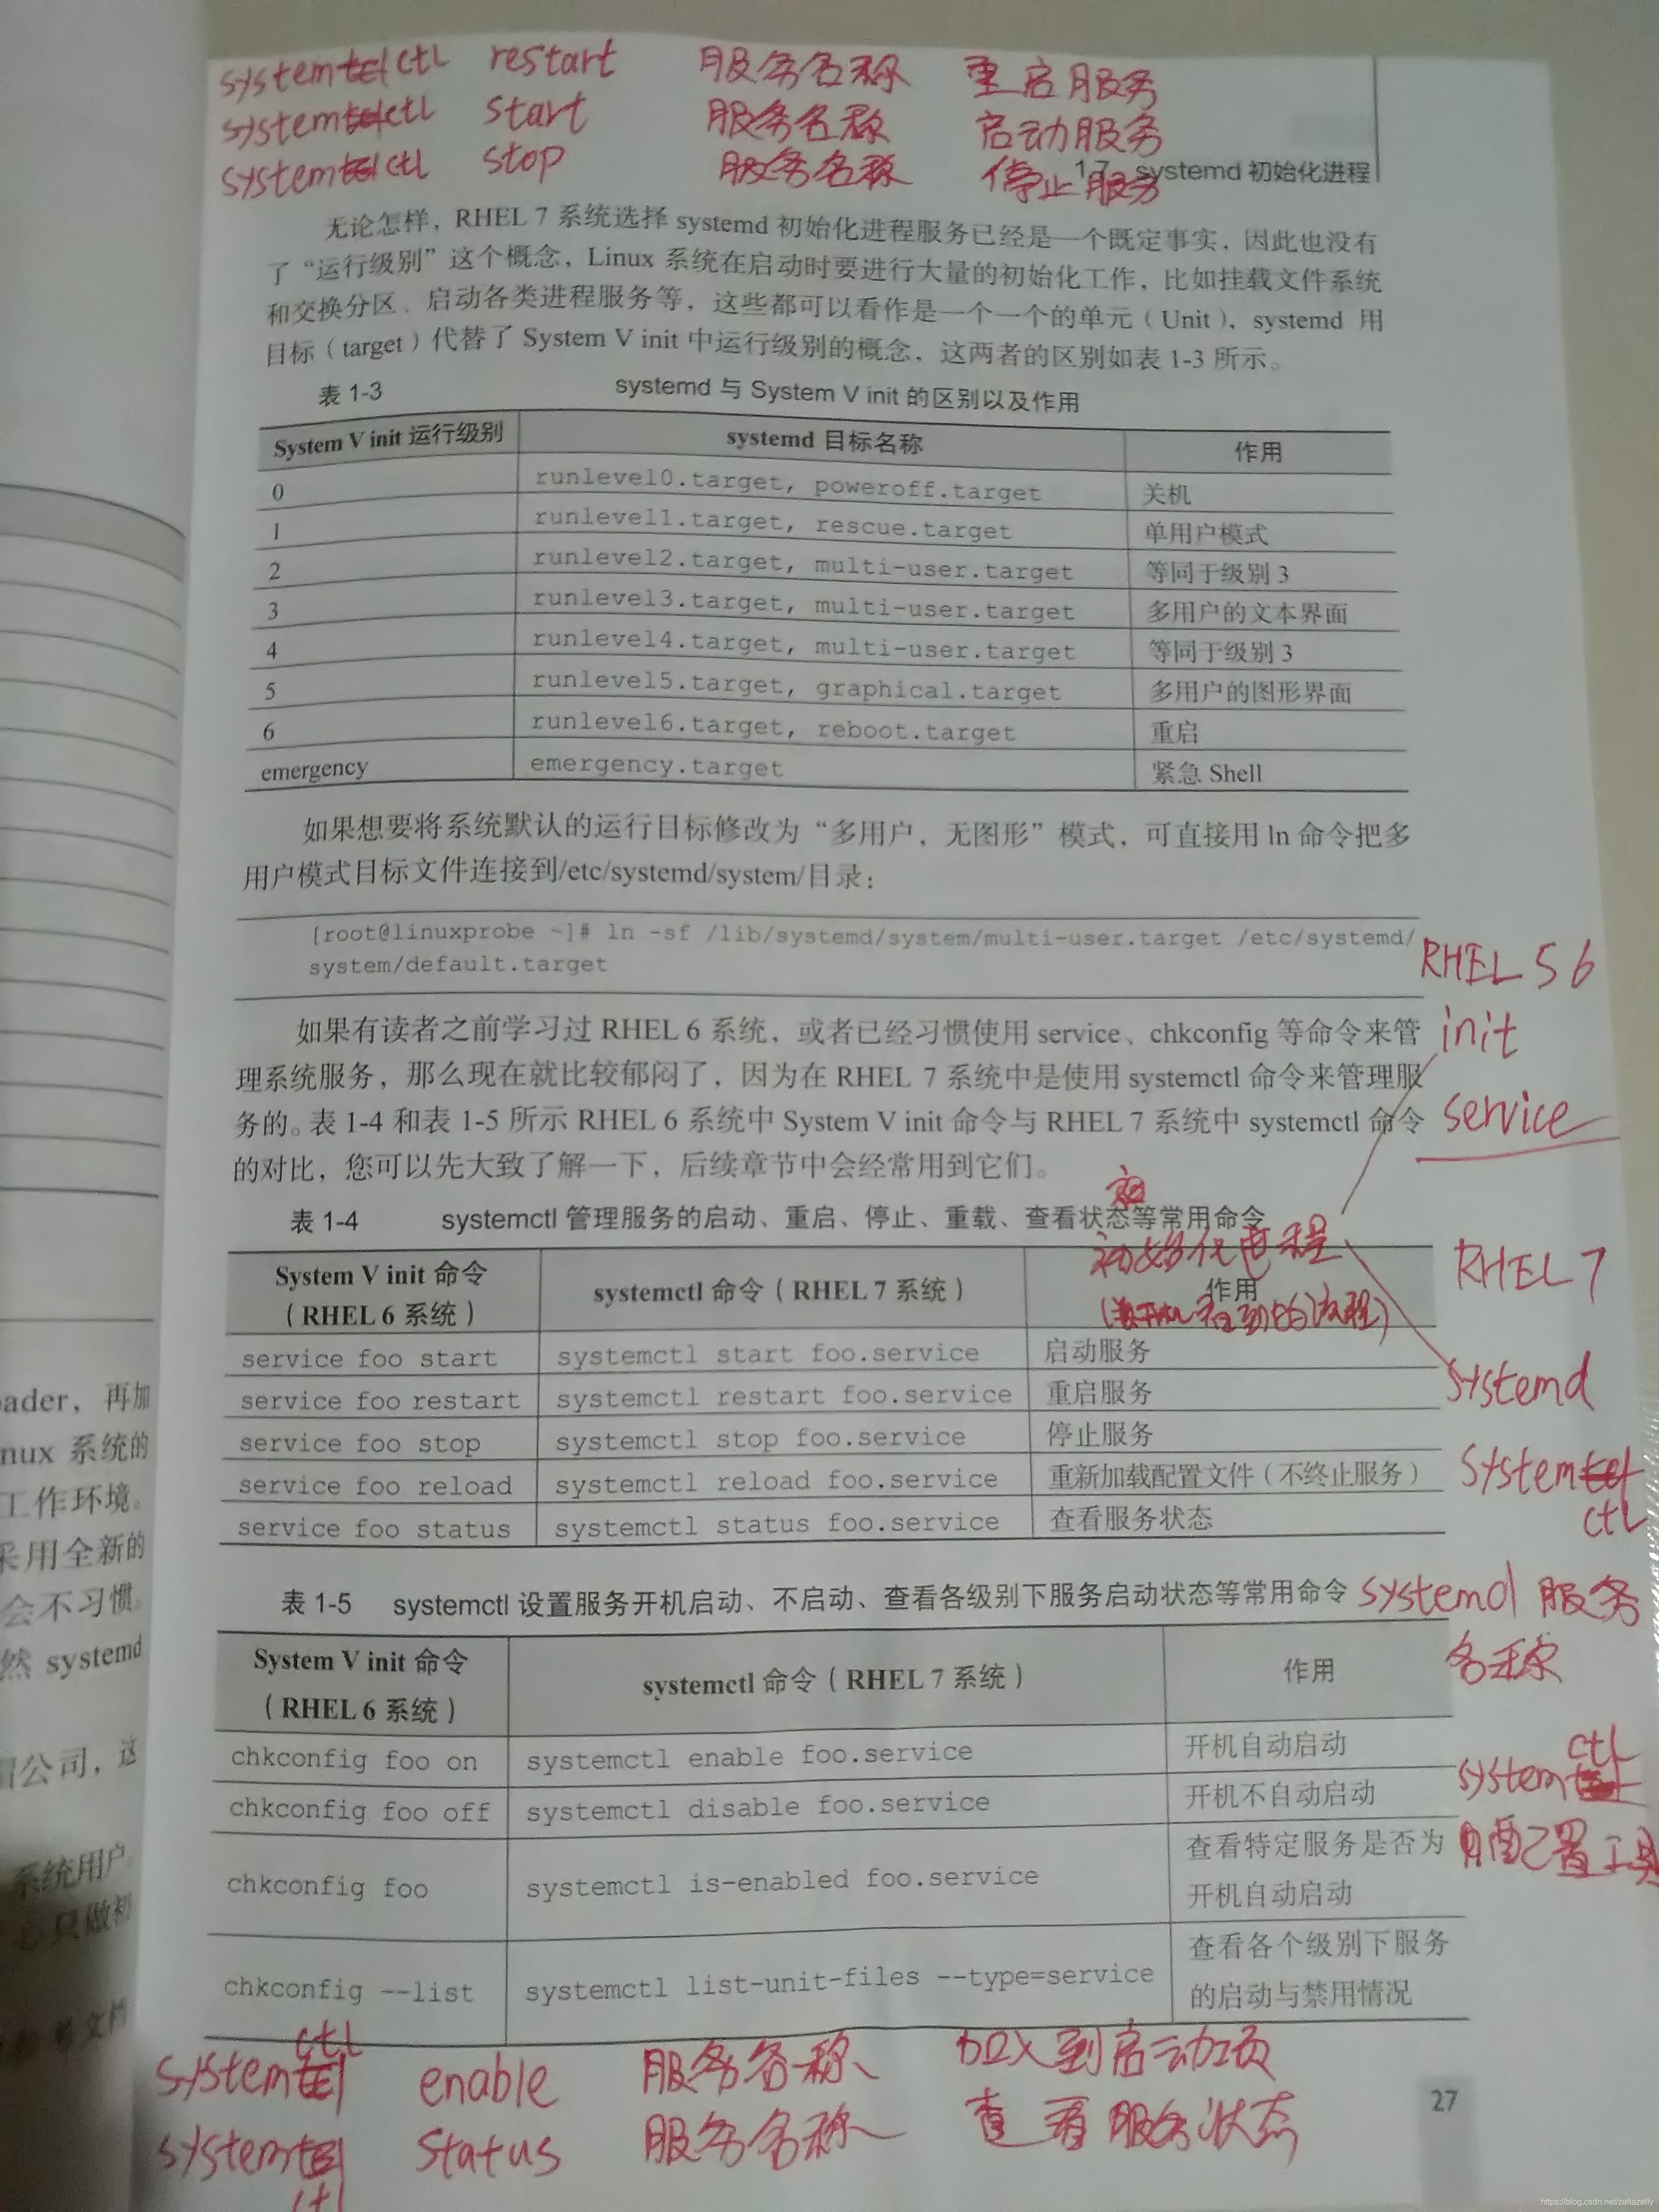 systemctl restart 服务名称 重启服务
systemctl start 服务名称 启动服务
systemctl stop 服务名称 停止服务
1.7 systemd 初始化进程
无论怎样，RHEL 7 系统选择 systemd 初始化进程服务已经是一个既定事实，因此也没有
了“运行级别”这个概念，Linux 系统在启动时要进行大量的初始化工作，比如挂载文件系统
和交换分区、启动各类进程服务等，这些都可以看作是一个一个的单元（Unit），systemd 用
目标（target）代替了 System V init 中运行级别的概念，这两者的区别如表 1-3 所示。
表 1-3 systemd 与 System V init 的区别以及作用
System V init 运行级别 systemd 目标名称 作用
0 runlevel0.target, poweroff.target 关机
1 runlevel1.target, rescue.target 单用户模式
2 runlevel2.target, multi-user.target 等同于级别 3
3 runlevel3.target, multi-user.target 多用户的文本界面
4 runlevel4.target, multi-user.target 等同于级别 3
5 runlevel5.target, graphical.target 多用户的图形界面
6 runlevel6.target, reboot.target 重启
emergency emergency.target 紧急 Shell
如果想要将系统默认的运行目标修改为“多用户，无图形”模式，可直接用 ln 命令把多
用户模式目标文件连接到/etc/systemd/system/目录：
[root@linuxprobe ~]# ln -sf /lib/systemd/system/multi-user.target /etc/systemd/
system/default.target
RHEL 5 6
如果有读者之前学习过 RHEL 6 系统，或者已经习惯使用 service、chkconfig 等命令来管
init
理系统服务，那么现在就比较郁闷了，因为在 RHEL 7 系统中是使用 systemctl 命令来管理服
务的。表 1-4 和表 1-5 所示 RHEL 6 系统中 System V init 命令与 RHEL 7 系统中 systemctl 命令
service
的对比，您可以先大致了解一下，后续章节中会经常用到它们。
表 1-4 systemctl 管理服务的启动、重启、停止、重载、查看状态等常用命令
初始化进程
RHEL 7
System V init 命令
（RHEL 6 系统）
systemctl 命令（RHEL 7 系统）
作用
service foo start systemctl start foo.service 启动服务
service foo restart systemctl restart foo.service 重启服务
systemd
service foo stop systemctl stop foo.service 停止服务
service foo reload systemctl reload foo.service 重新加载配置文件（不终止服务）
systemctl
service foo status systemctl status foo.service 查看服务状态
表 1-5 systemctl 设置服务开机启动、不启动、查看各级别下服务启动状态等常用命令
systemd 服务
名称
System V init 命令
（RHEL 6 系统）
systemctl 命令（RHEL 7 系统）
作用
chkconfig foo on systemctl enable foo.service 开机自动启动
systemctl
chkconfig foo off systemctl disable foo.service 开机不自动启动
配置工具
chkconfig foo systemctl is-enabled foo.service 查看特定服务是否为
开机自动启动
chkconfig --list systemctl list-unit-files --type=service 查看各个级别下服务
的启动与禁用情况
systemctl enable 服务名称 加入到启动项
systemctl status 服务名称 查看服务状态
27
ader，再加
nux 系统的
工作环境。
采用全新的
会不习惯。
然 systemd
公司，这
系统用户
心只做初
https://blog.csdn.net/zellazelly